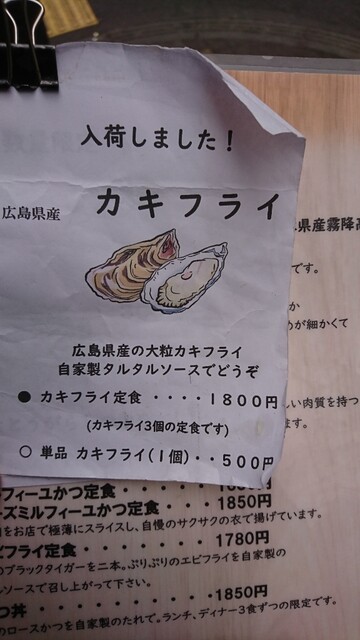 入荷しました!
広島県産 カキフライ
広島県産の大粒カキフライ
自家製タルタルソースでどうぞ
● カキフライ定食 ・・・・1800円
(カキフライ3個の定食です)
○ 単品 カキフライ(1個)・・500円
県産霧降高
です。
か
めが細かくて
しい肉質を持つ
ます。
フィーユかつ定食・・・・・・・1850円
ーズミルフィーユかつ定食・・・1850円
をお店で極薄にスライスし、自慢のサクサクの衣で揚げています。
ビフライ定食・・・・・・・・・1780円
のブラックタイガーを二本。ぷりぷりのエビフライを自家製の
ルソースで召し上がって下さい。
つ丼・・・・・・・・・・・1850円
のロースかつを自家製のたれで。ランチ、ディナー3食ずつの限定です。